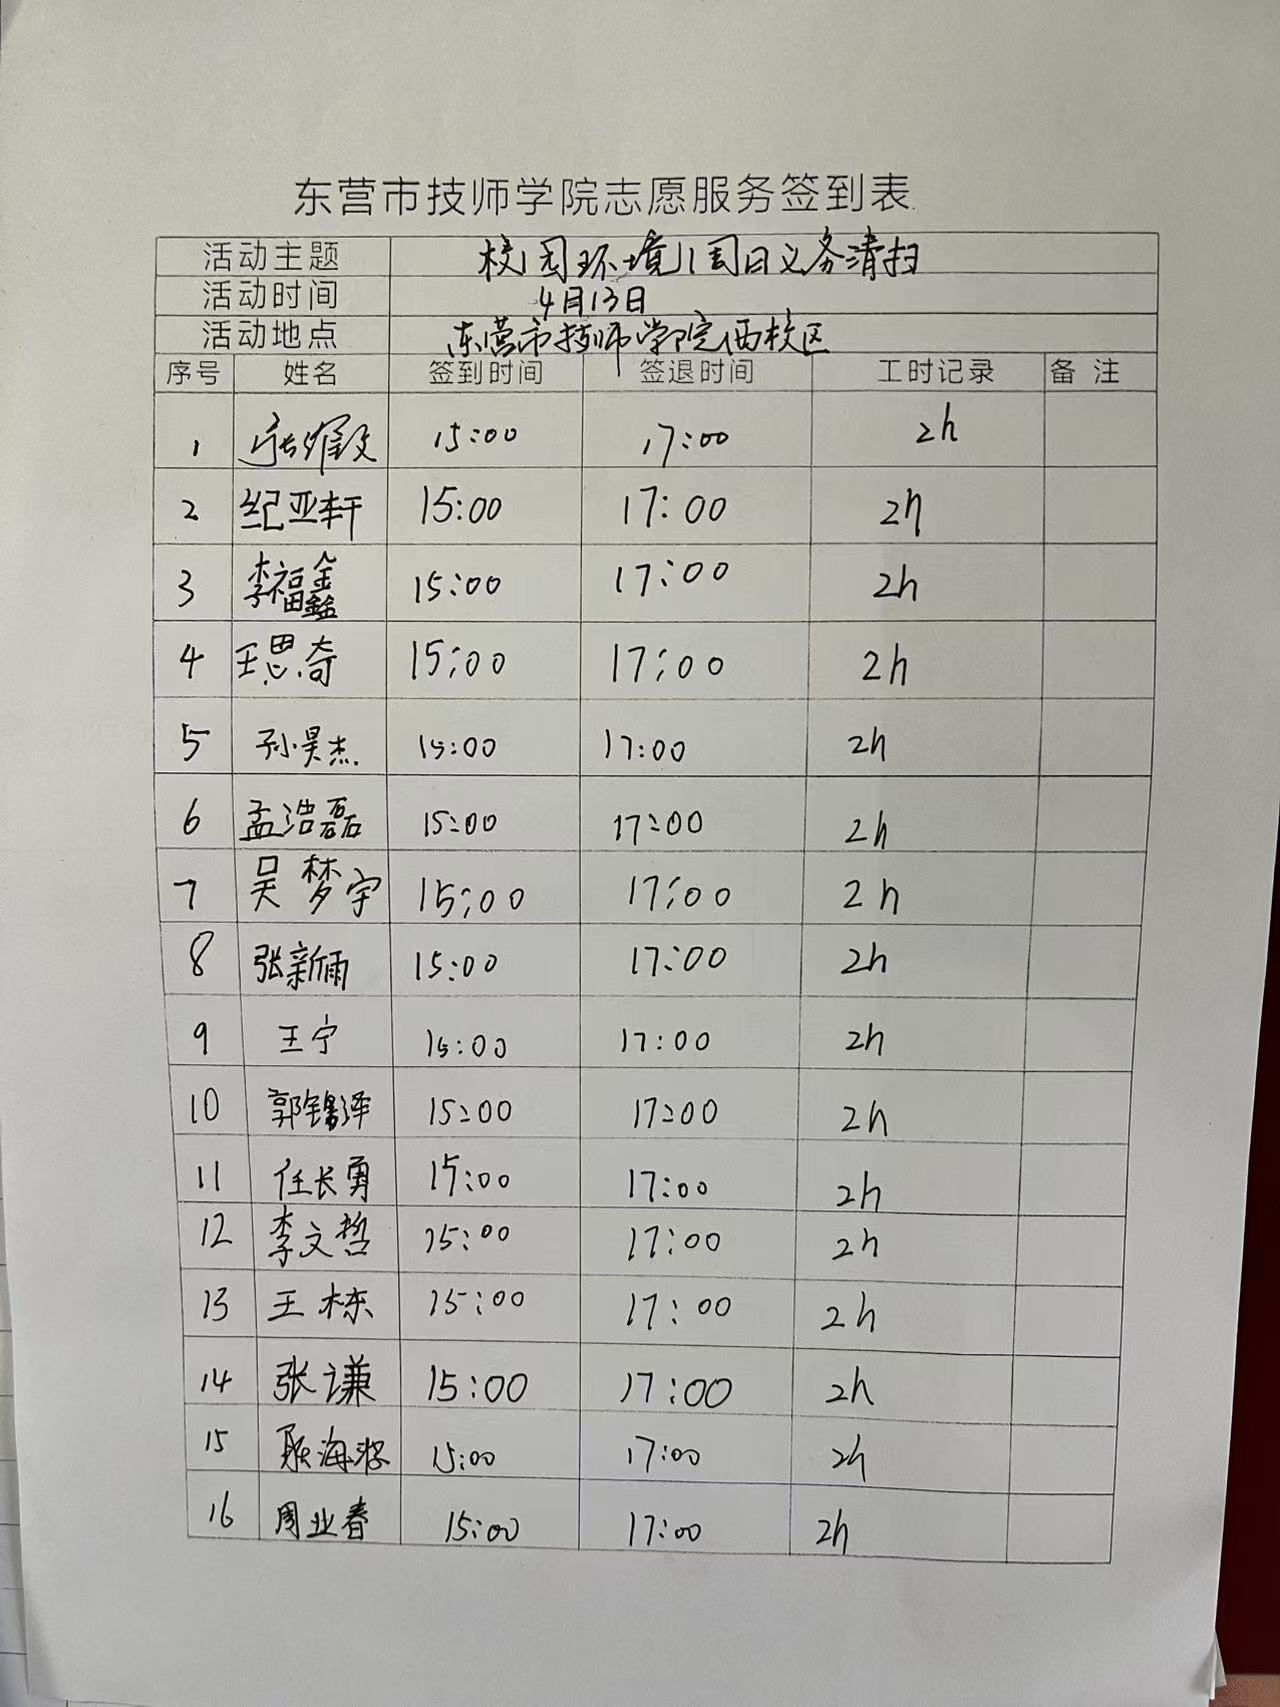 东营市技师学院志愿服务签到表
活动主题 校园环境周日义务清扫
活动时间 4月13日
活动地点 东营市技师学院西校区
序号 姓名 签到时间 签退时间 工时记录 备 注
1 15:00 17:00 2h
2 纪亚轩 15:00 17:00 2h
3 李福鑫 15:00 17:00 2h
4 王思奇 15:00 17:00 2h
5 孙昊杰 15:00 17:00 2h
6 孟浩磊 15:00 17:00 2h
7 吴梦宇 15:00 17:00 2h
8 张新雨 15:00 17:00 2h
9 王宁 15:00 17:00 2h
10 郭锦泽 15:00 17:00 2h
11 任长勇 15:00 17:00 2h
12 李文哲 15:00 17:00 2h
13 王栋 15:00 17:00 2h
14 张谦 15:00 17:00 2h
15 15:00 17:00 2h
16 周业春 15:00 17:00 2h